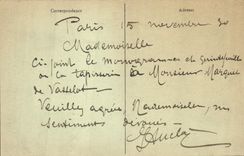 Correspondance
Adresse
Paris 15 novembre 30
Mademoiselle
Ci-joint le monogramme de
ou la tapisserie à Monsieur Marquet
de Vasselot
Veuillez agréer, Mademoiselle, mes
sentiments dévoués